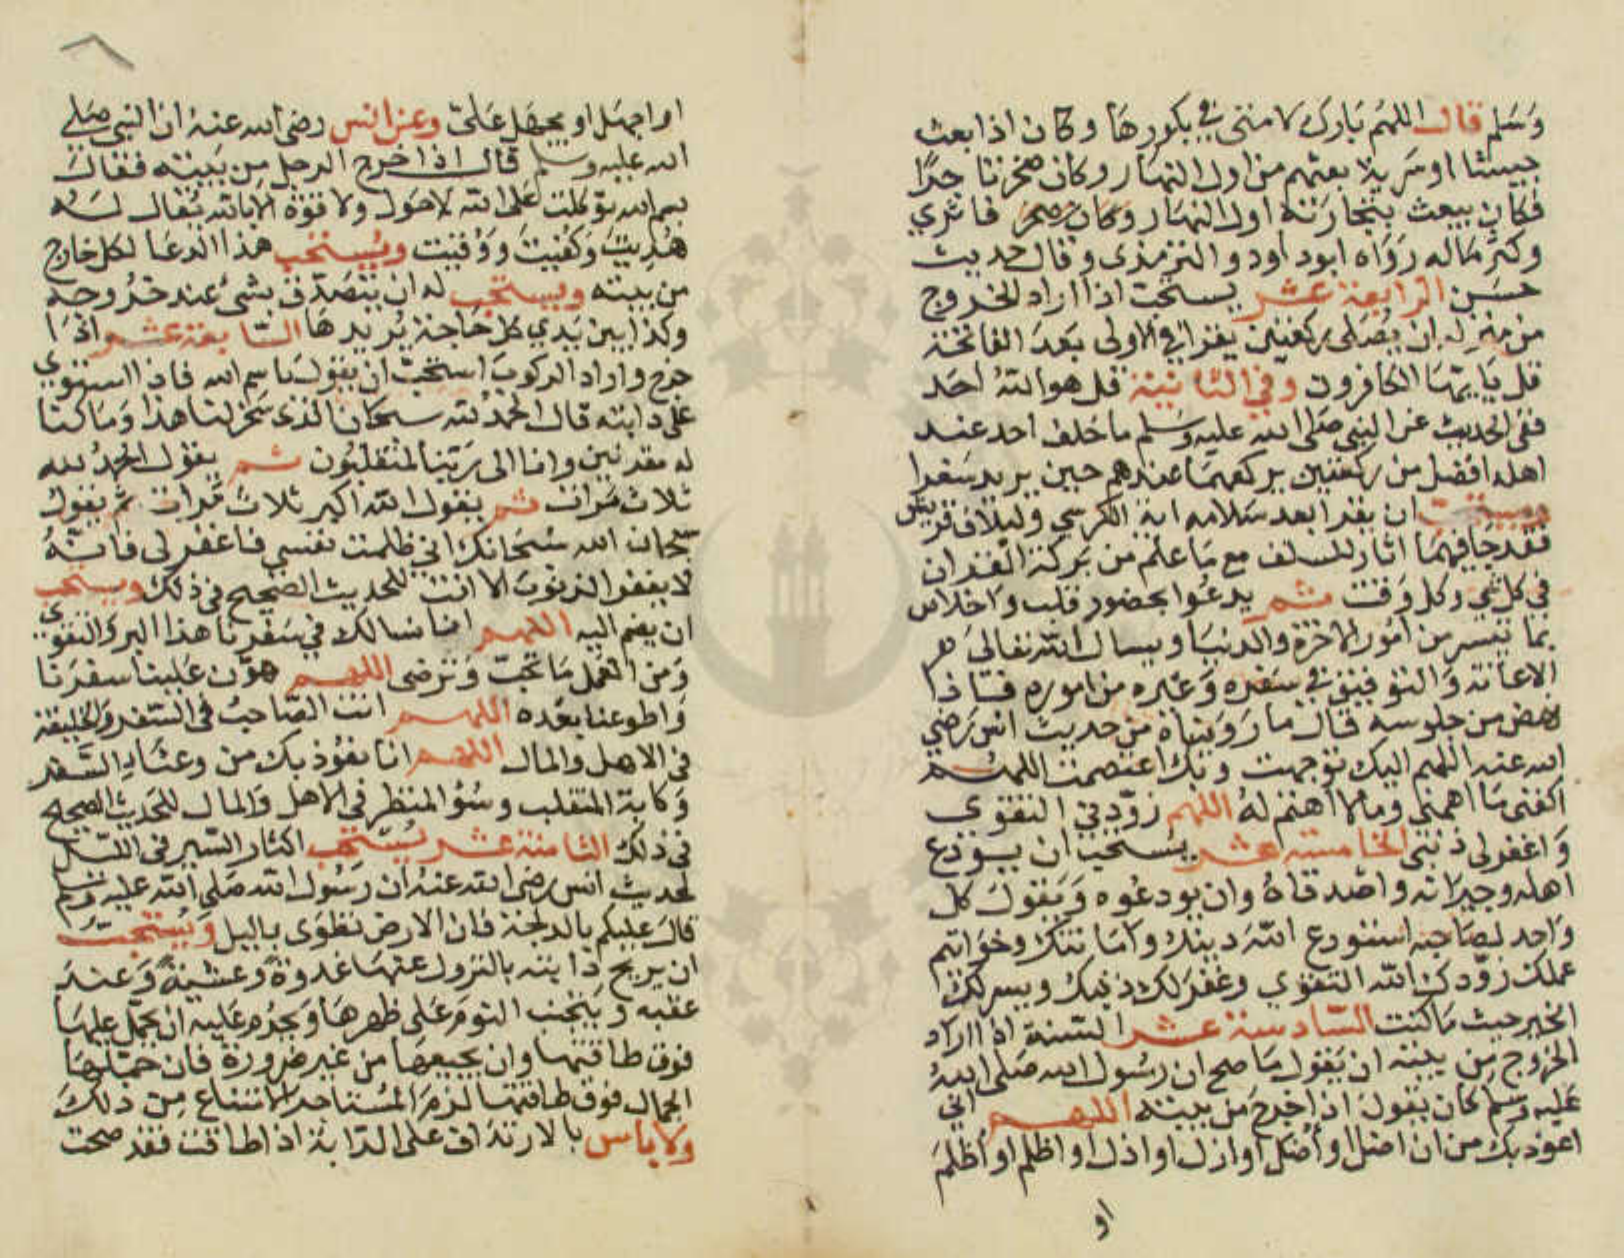 وسلم قال اللهم بارك لامتي في بكورها وكان اذا بعث
جيشا او سرية بعثهم من اول النهار وكان صخر تاجرا
فكان يبعث بتجارته اول النهار وكان صخر فاثري
وكثر ماله رواه ابو داود والترمذي وقال حديث
حسن الرابعة عشر يستحب اذا اراد الخروج
من منزله ان يصلي ركعتين يقرا في الاولى بعد الفاتحة
قل يا ايها الكافرون وفي الثانية قل هو الله احد
ففي الحديث عن النبي صلى الله عليه وسلم ما خلف احد عند
اهله افضل من ركعتين يركعهما عندهم حين يريد سفرا
ويستحب ان يقرا بعد سلامه اية الكرسي ولايلاف قريش
فقد جا فيهما اثار للسلف مع ما علم من بركة القران
في كل شي وكل وقت ثم يدعوا بحضور قلب واخلاص
بما تيسر من امور الاخرة والدنيا ويسال الله تعالى
الاعانة والتوفيق في سفره وغيره من اموره فاذا
نهض من جلوسه قال ما رويناه من حديث انس رضي
الله عنه اللهم اليك توجهت وبك اعتصمت اللهم
اكفني ما اهمني وما لا اهتم له اللهم زودني التقوى
واغفر لي ذنبي الخامسة عشر يستحب ان يودع
اهله وجيرانه واصدقاه وان يودعوه ويقول كل
واحد لصاحبه استودع الله دينك وامانتك وخواتم
عملك زودك الله التقوي وغفر لك ذنبك ويسر لك
الخير حيث ما كنت السادسة عشر السنة اذا اراد
الخروج من بيته ان يقول ما صح ان رسول الله صلى الله
عليه وسلم كان يقول اذا خرج من بيته اللهم اني
اعوذ بك من ان اضل او اضل او ازل او ازل او اظلم او اظلم
او
او اجهل او يجهل علي وعن انس رضي الله عنه ان النبي صلى
الله عليه وسلم قال اذا خرج الرجل من بيته فقال
بسم الله توكلت على الله لا حول ولا قوة الا بالله يقال له
هديت وكفيت ووقيت ويستحب هذا الدعا لكل خارج
من بيته ويستحب له ان يتصدق بشئ عند خروجه
وكذا بين يدي كل حاجة يريدها السابعة عشر اذا
خرج واراد الركوب استحب ان يقول باسم الله فاذا استوي
على دابته قال الحمد لله سبحان الذي سخر لنا هذا وما كنا
له مقرنين وانا الى ربنا لمنقلبون ثم يقول الحمد لله
ثلاث مرات ثم يقول الله اكبر ثلاث مرات ثم يقول
سبحان الله سبحانك اني ظلمت نفسي فاغفر لي فانه
لا يغفر الذنوب الا انت للحديث الصحيح في ذلك ويستحب
ان يضم اليه اللهم انا نسالك في سفرنا هذا البر والتقوي
ومن العمل ما تحب وترضى اللهم هون علينا سفرنا
واطو عنا بعده اللهم انت الصاحب في السفر والخليفة
في الاهل والمال اللهم انا نعوذ بك من وعثاء السفر
وكابة المنقلب وسؤ المنظر في الاهل والمال للحديث الصحيح
في ذلك الثامنة عشر يستحب اكثار السير في الليل
لحديث انس رضي الله عنه ان رسول الله صلى الله عليه وسلم
قال عليكم بالدلجة فان الارض تطوى بالليل ويستحب
ان يريح دابته بالنزول عنها غدوة وعشية وعند
عقبه ويتجنب النوم على ظهرها ويحرم عليه ان يحمل عليها
فوق طاقتها وان يجيعها من غير ضرورة فان حملها
الجمال فوق طاقتها لزم المستاجر الامتناع من ذلك
ولا باس بالارتداف على الدابة اذا اطاقت فقد صحت